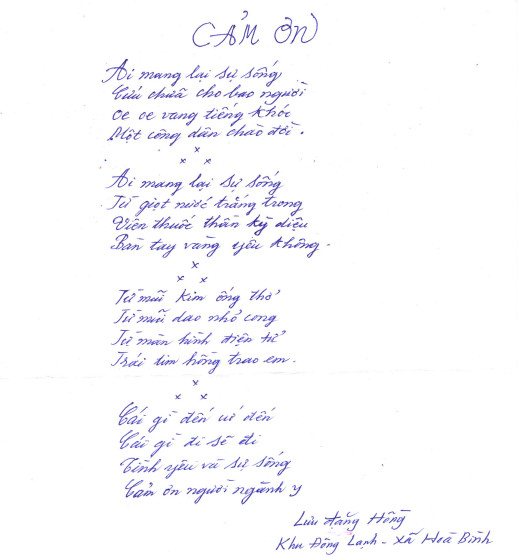 CẢM ƠN
Ai mang lại sự sống
Cứu chữa cho bao người
Oe oe vang tiếng khóc
Một công dân chào đời.
x
x x
Ai mang lại sự sống
Từ giọt nước trắng trong
Viên thuốc thần kỳ diệu
Bàn tay vàng yêu không.
x
x x
Từ mũi kim ống thở
Từ mũi dao nhỏ cong
Từ màn hình điện tử
Trái tim hồng trao em.
x
x x
Cái gì đến cứ đến
Cái gì đi sẽ đi
Tình yêu và sự sống
Cảm ơn người ngành y
Lưu Đăng Hồng
Khu Đồng Lạnh - Xã Hoà Bình